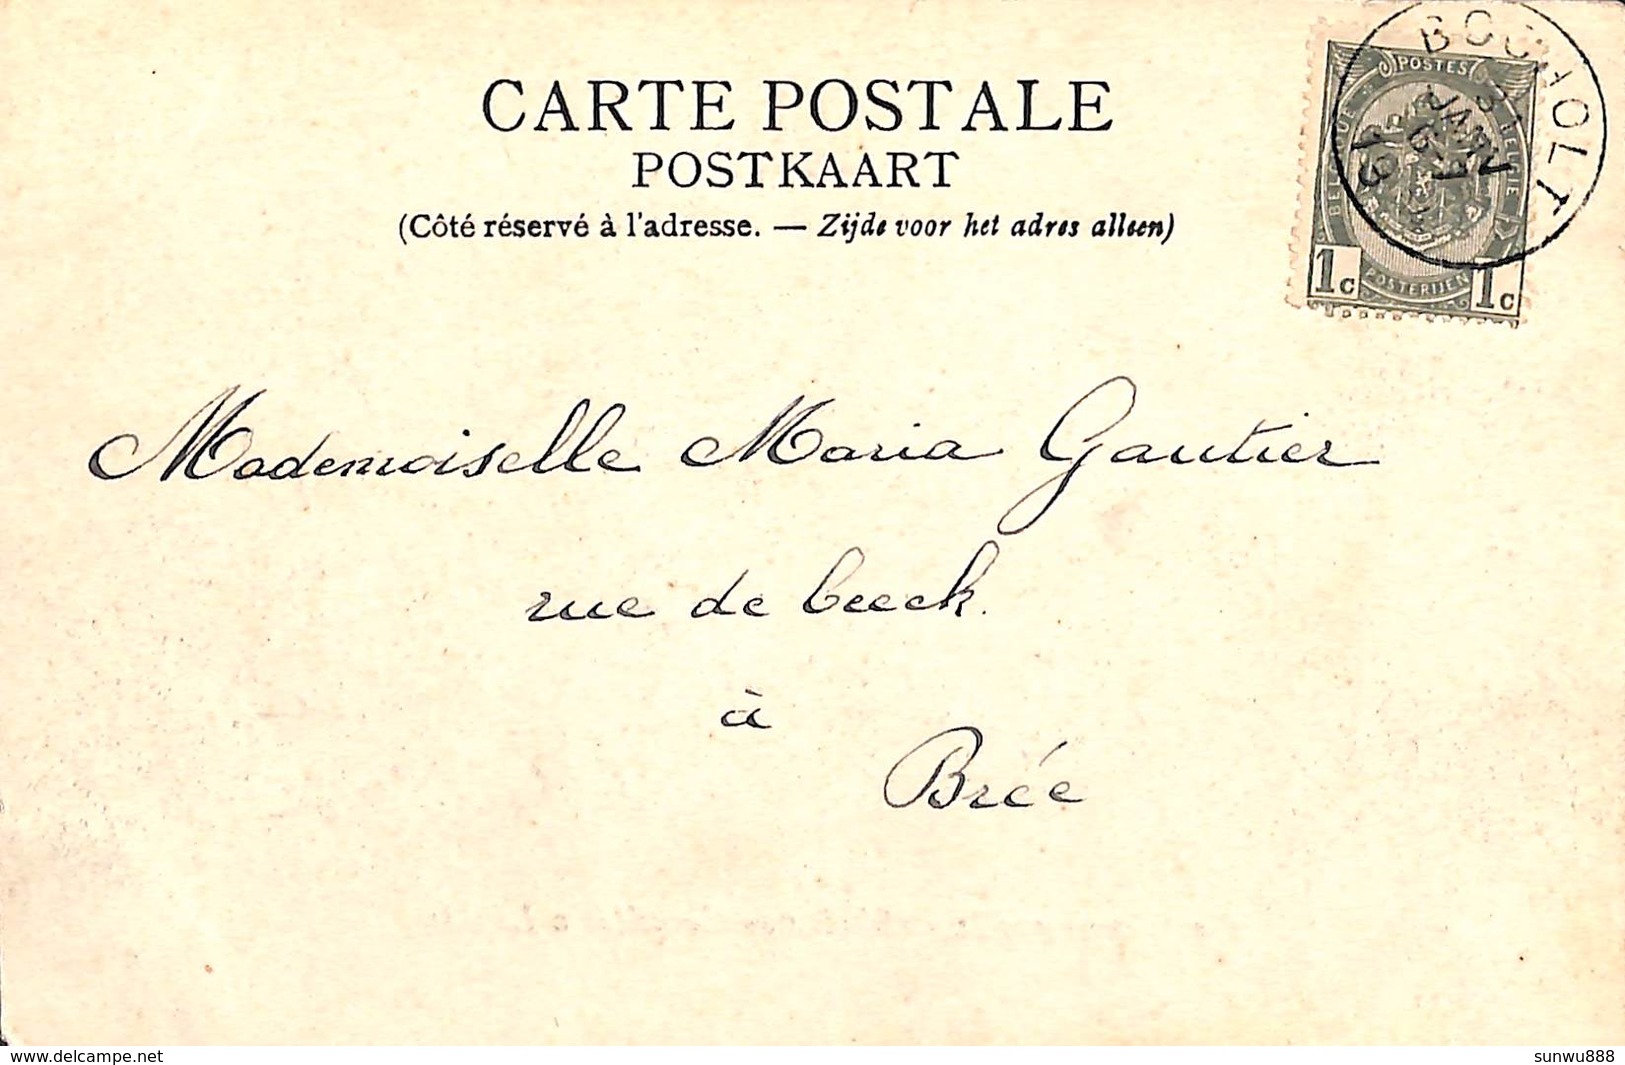 CARTE POSTALE
POSTKAART
(Côté réservé à l'adresse. — Zijde voor het adres alleen)
BOCHOLT
POSTES
BELGIE
POSTERIJEN
1c 1c
Mademoiselle Maria Gautier
rue de beeck.
à
Brée
www.delcampe.net
sunwu888